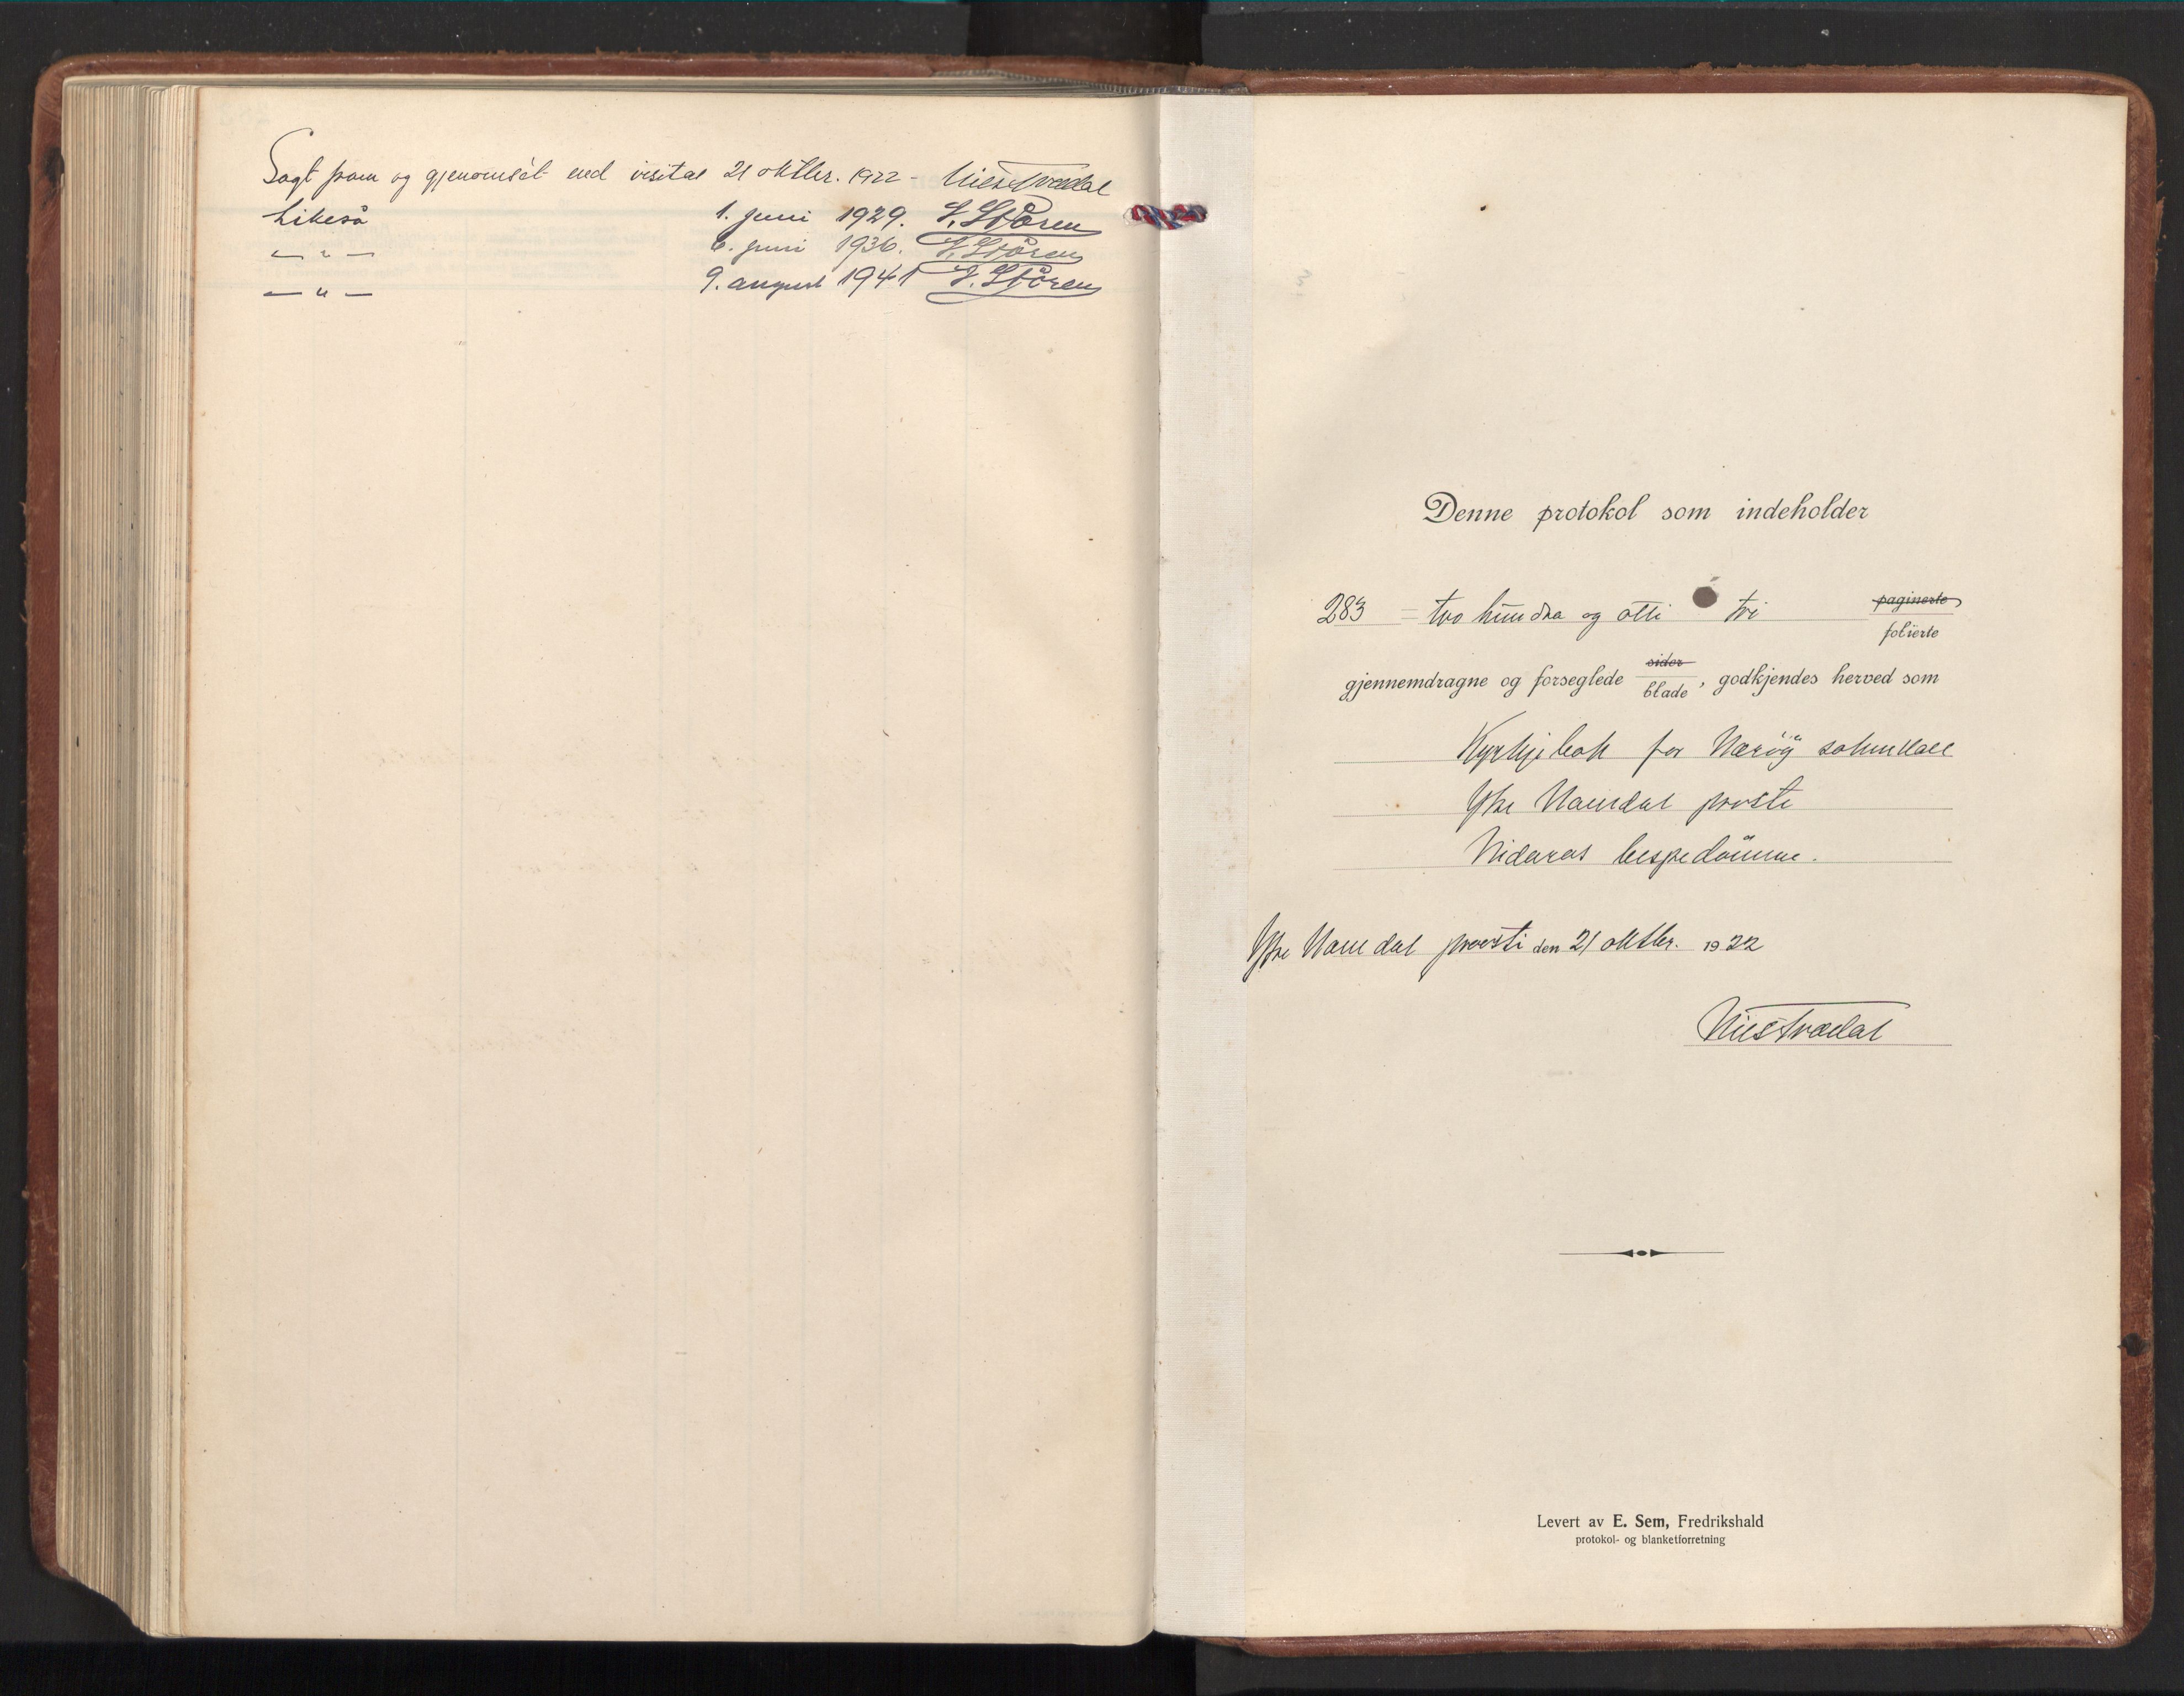 Lagt fram og gjenomsét ved visitas 21 oktbr. 1922 - Nils Trædal
Likeså 1. juni 1929. J. Støren
— " — 6. juni 1936. J. Støren
— " — 9. august 1941 J. Støren
Denne protokol som indeholder
283 = tvo hundra og otti tri paginerte
folierte
gjennemdragne og forseglede sider blade, godkjendes herved som
Kyrkjebok for Nærøy soknekall
Ytre Namdal prosti
Nidaros bispedømme.
Ytre Namdal prosti den 21 oktbr. 1922
Nils Trædal
Levert av E. Sem, Fredrikshald
protokol- og blanketforretning